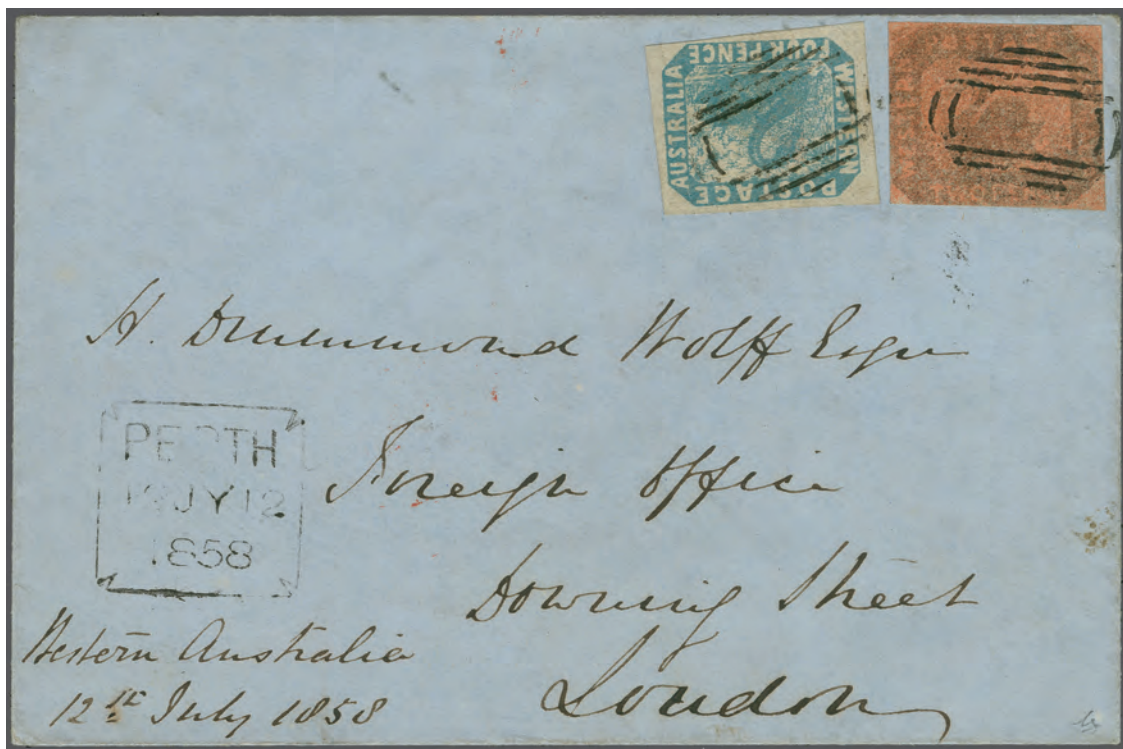 POSTAGE
AUSTRALIA
WESTERN
FOUR PENCE
H. Drummond Wolff Esqre
Foreign Office
Downing Street
London
PERTH
JY 12
1858
Western Australia
12th July 1858